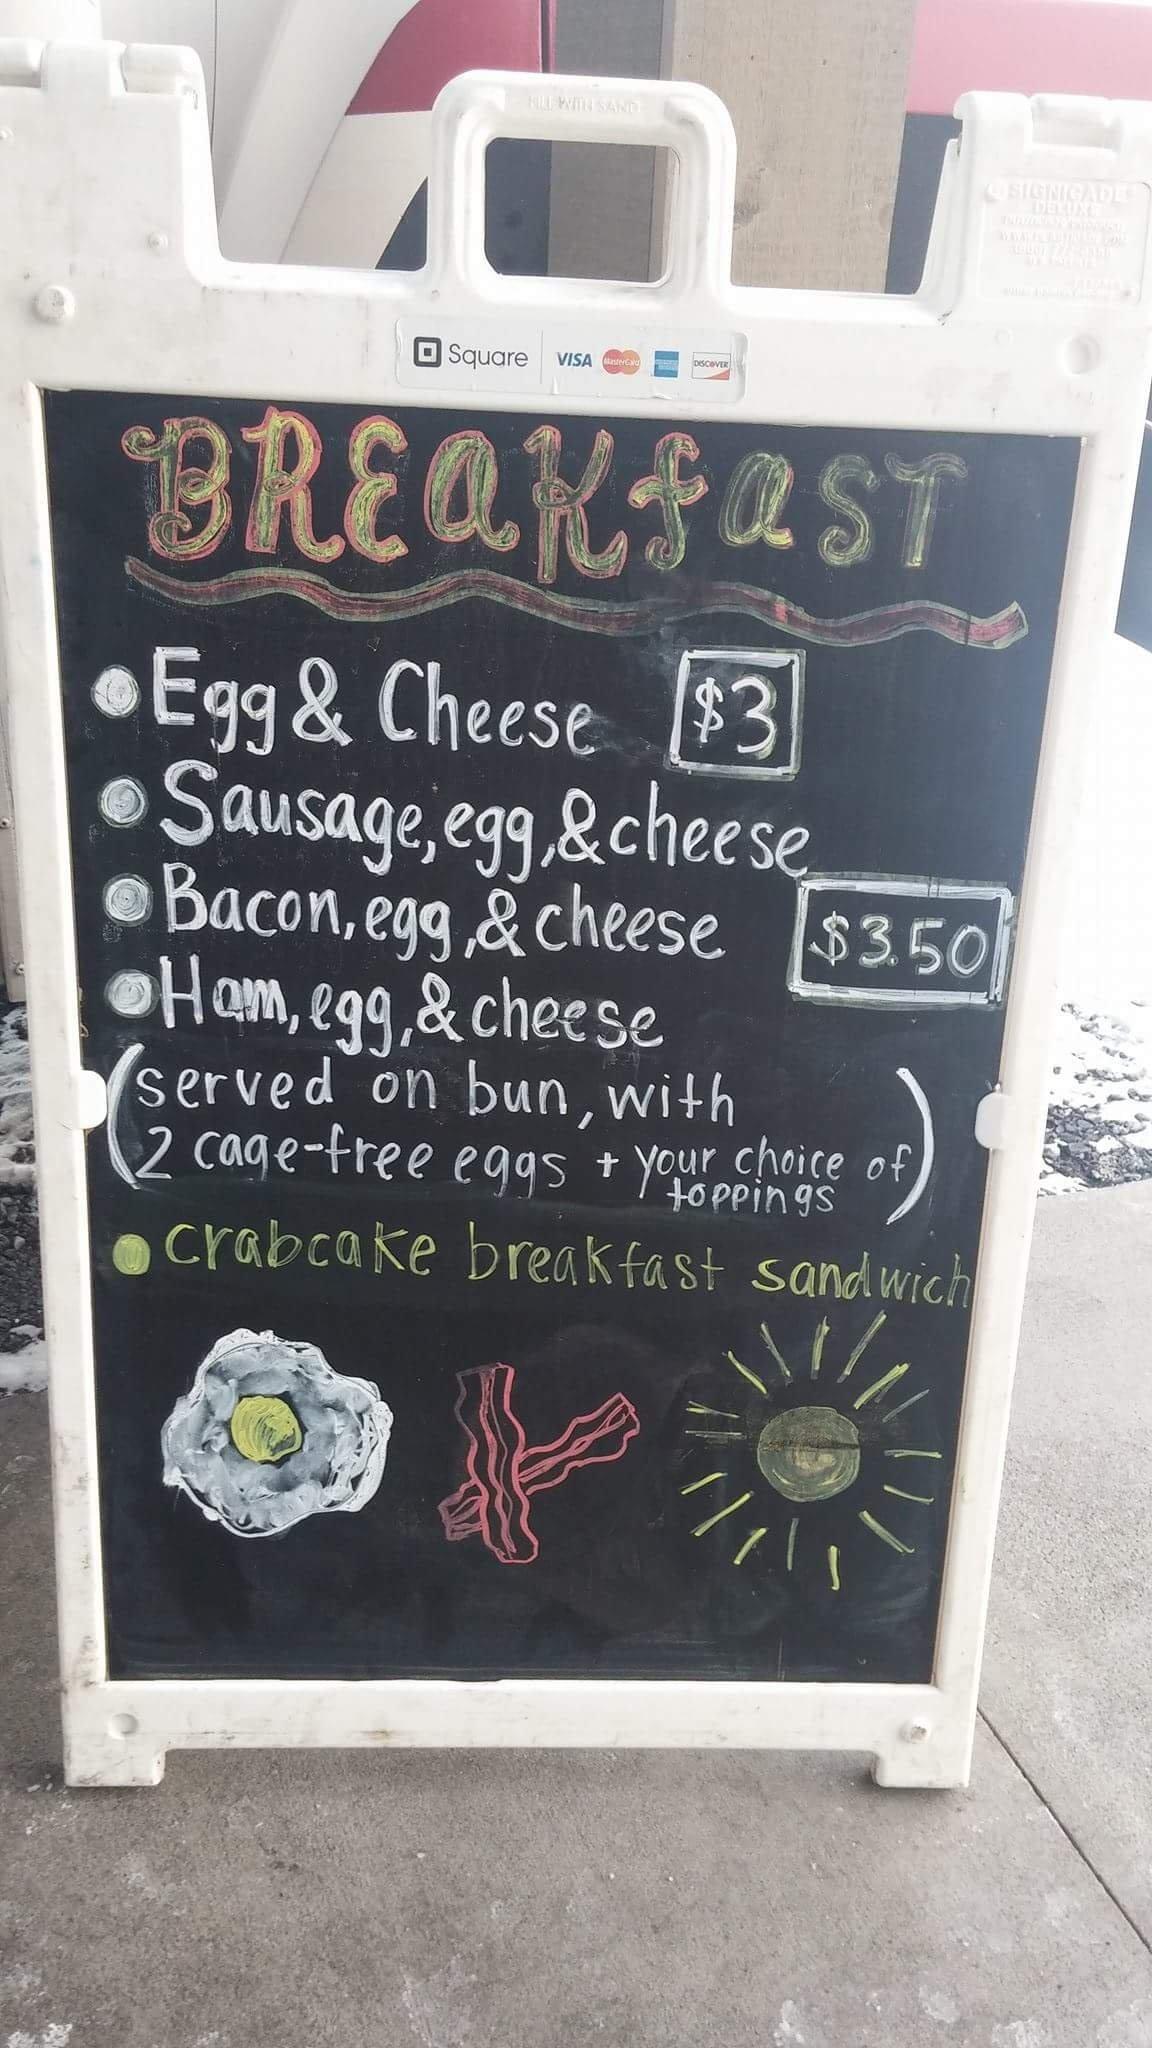 FILL WITH SAND
SIGNICADE
DELUXE
Square VISA MasterCard DISCOVER
BREAKfaST
Egg & Cheese $3
Sausage, egg, & cheese
Bacon, egg, & cheese $3.50
Ham, egg, & cheese
(served on bun, with
2 cage-free eggs + your choice of
toppings)
crabcake breakfast sandwich